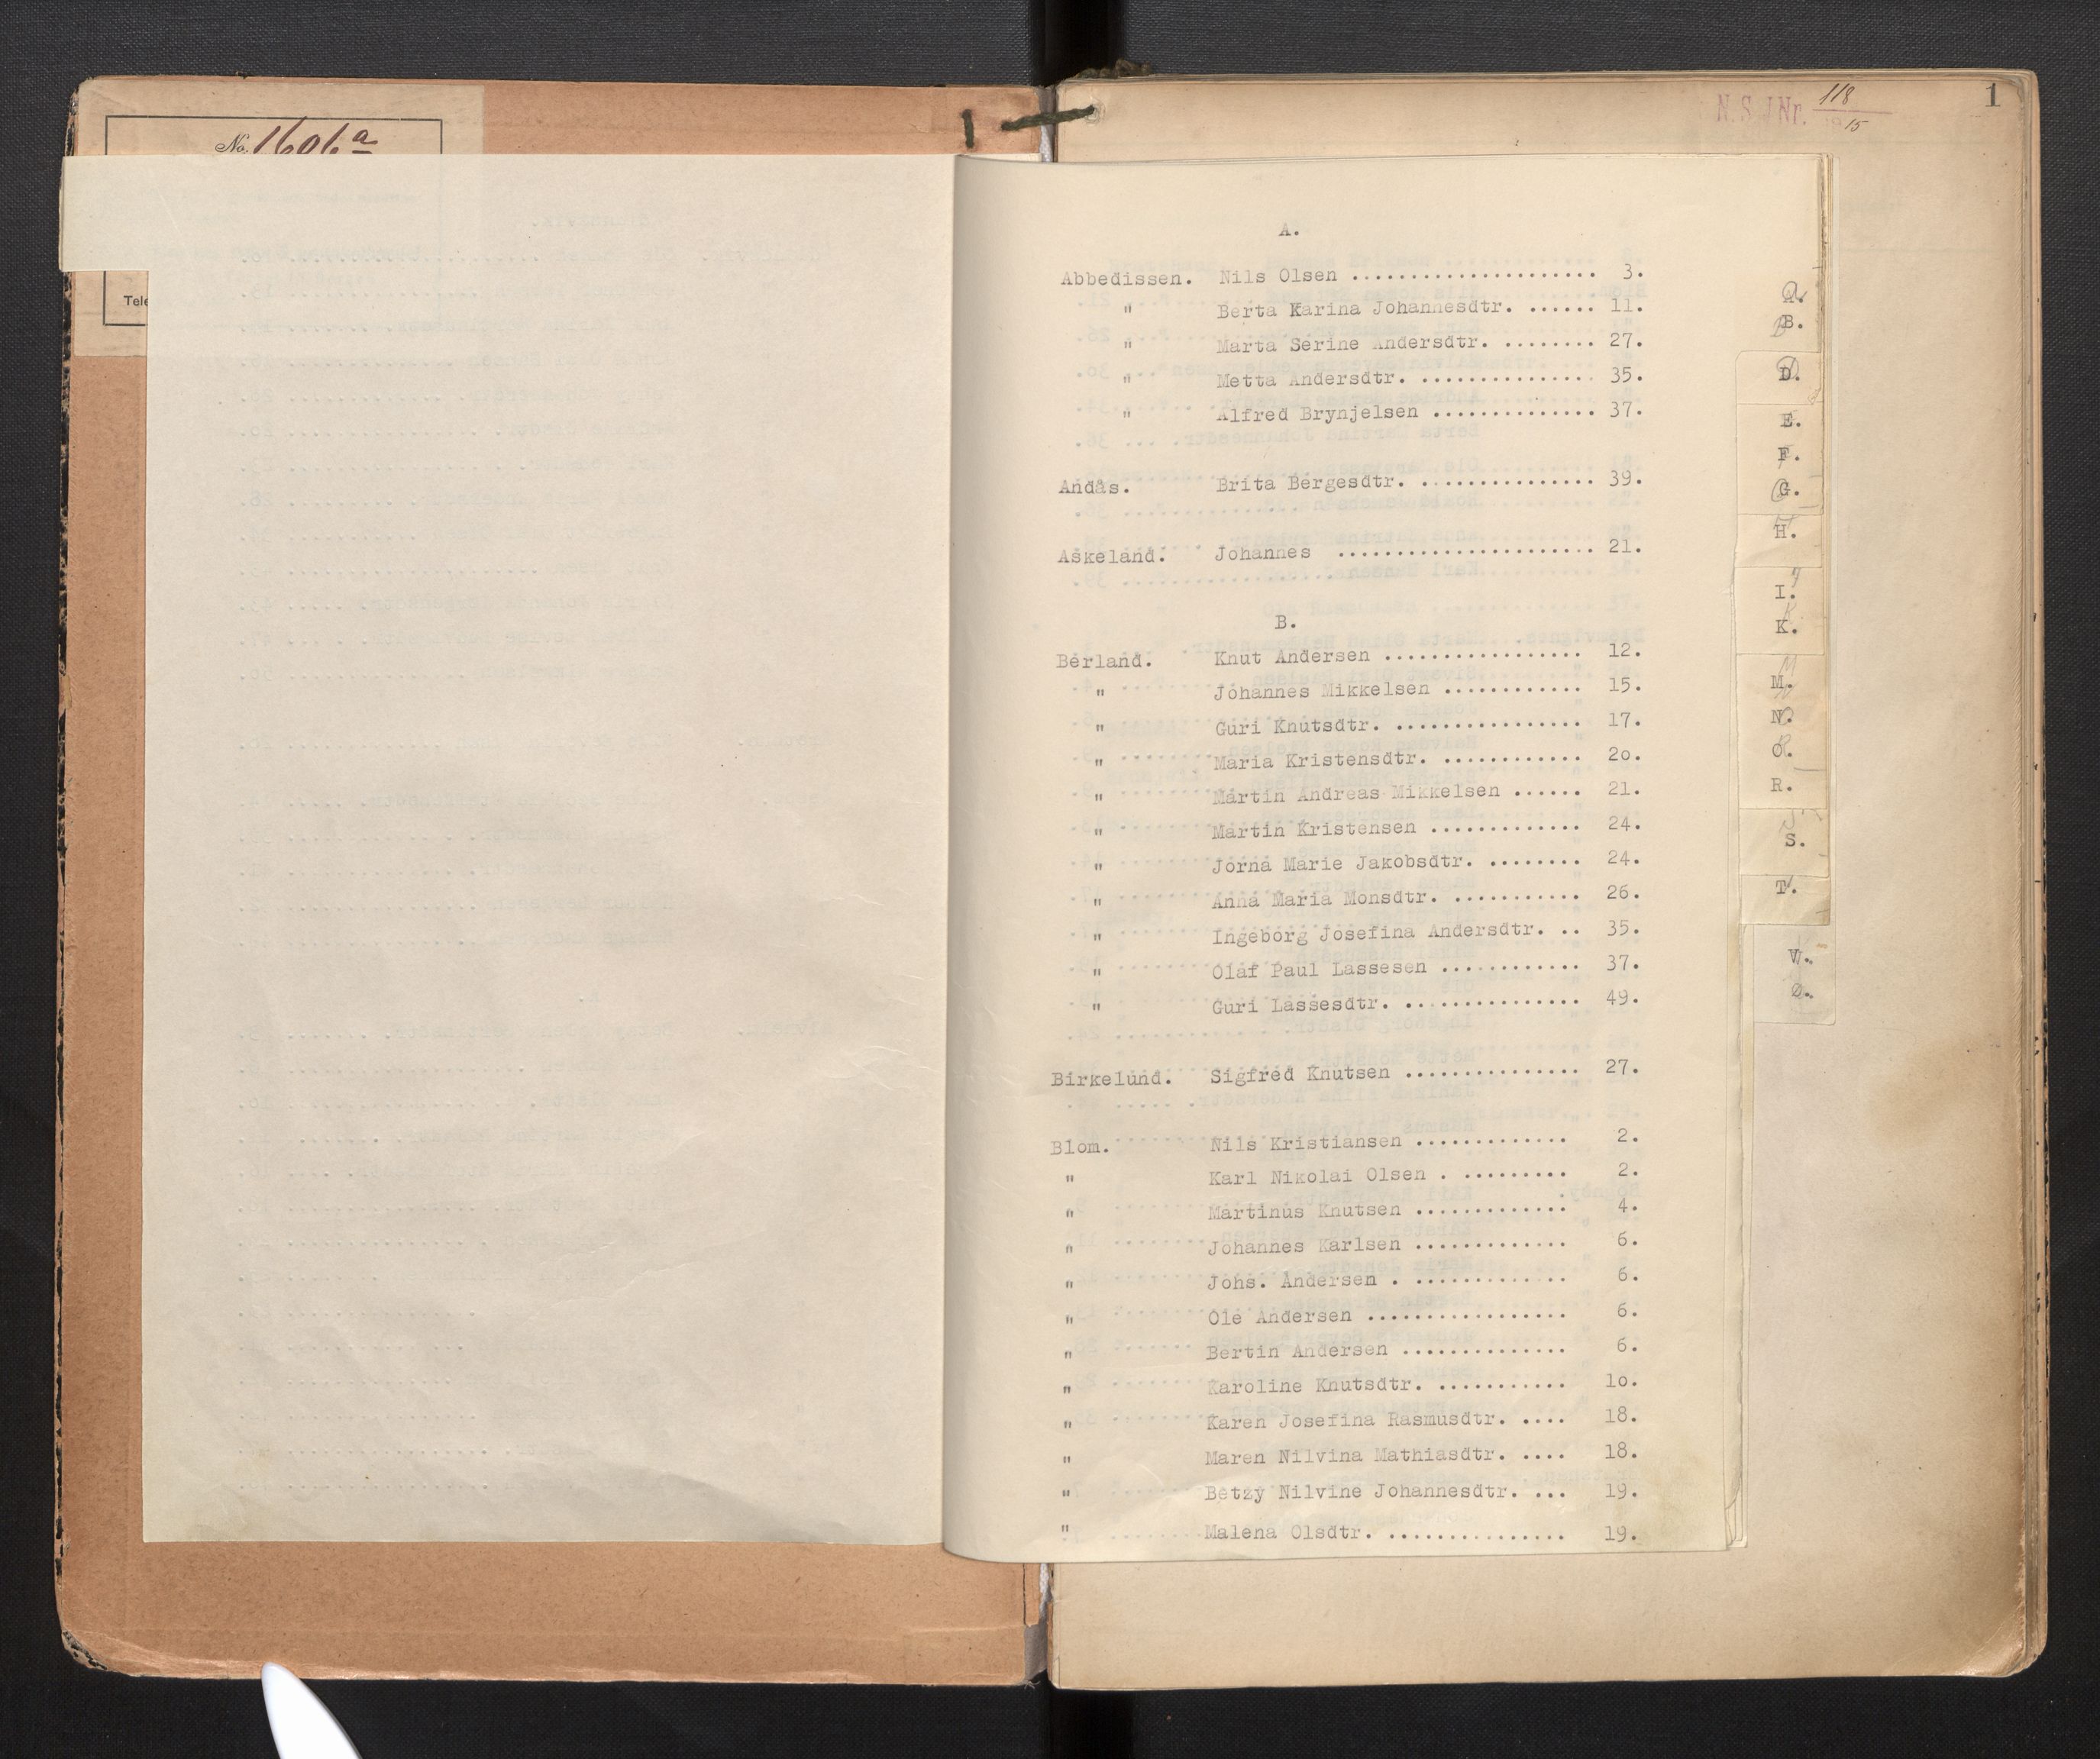 No. 1606a
Tele
N. S. JNr. 118
15
1
A.
Abbedissen. Nils Olsen ..................... 3.
" Berta Karina Johannesdtr. ...... 11.
" Marta Serine Andersdtr. ........ 27.
" Metta Andersdtr. ............... 35.
" Alfred Brynjelsen .............. 37.
Andås. Brita Bergesdtr. ............... 39.
Askeland. Johannes ...................... 21.
B.
Berland. Knut Andersen ................. 12.
" Johannes Mikkelsen ............ 15.
" Guri Knutsdtr. ................ 17.
" Maria Kristensdtr. ............ 2o.
" Martin Andreas Mikkelsen ...... 21.
" Martin Kristensen ............. 24.
" Jorna Marie Jakobsdtr. ........ 24.
" Anna Maria Monsdtr. ........... 26.
" Ingeborg Josefina Andersdtr. .. 35.
" Olaf Paul Lassesen ............ 37.
" Guri Lassesdtr. ............... 49.
Birkelund. Sigfred Knutsen ............... 27.
Blom. Nils Kristiansen ............. 2.
" Karl Nikolai Olsen . ......... 2.
" Martinus Knutsen ............. 4.
" Johannes Karlsen ............. 6.
" Johs. Andersen . ............. 6.
" Ole Andersen ................. 6.
" Bertin Andersen .............. 6.
" Karoline Knutsdtr. ........... 1o.
" Karen Josefina Rasmusdtr. .... 18.
" Maren Nilvina Mathiasdtr. .... 18.
" Betzy Nilvine Johannesdtr. ... 19.
" Malena Olsdtr. ............... 19.
A.
B.
D.
E.
F.
G.
H.
I.
K.
M.
N.
O.
R.
S.
T.
V.
Ø.